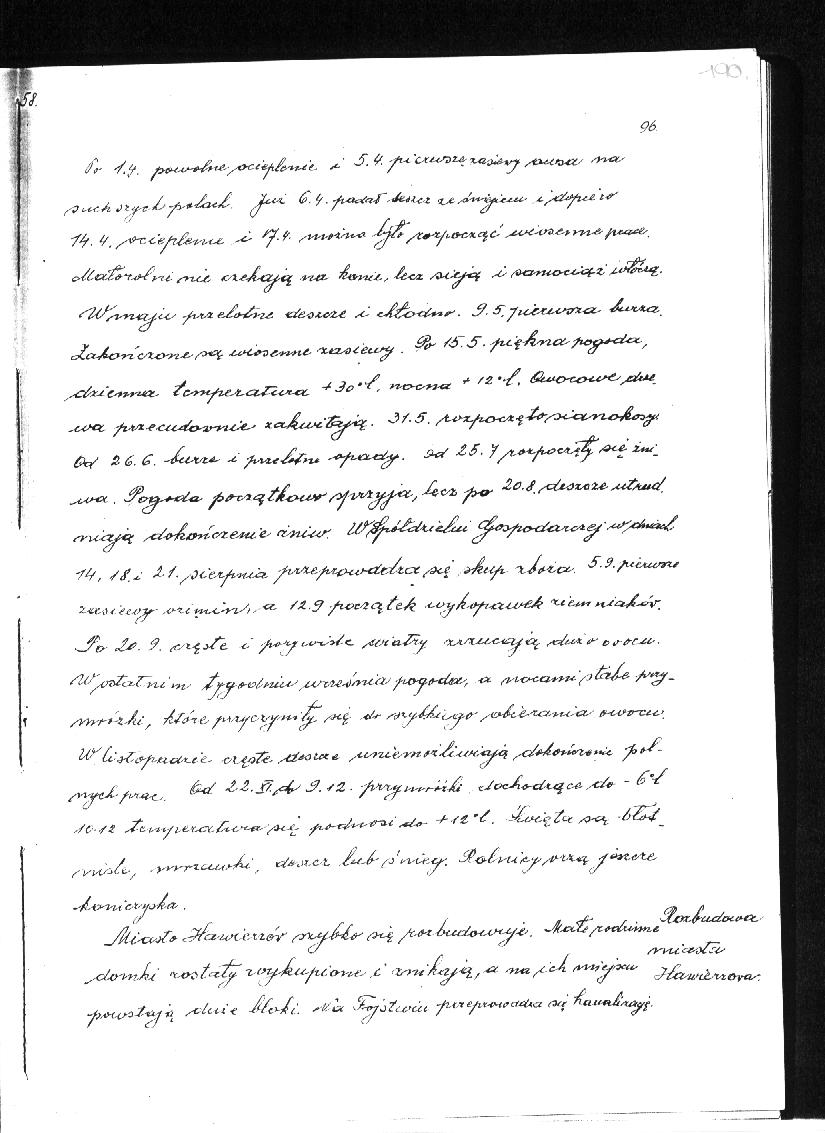 190.
58.
96.
Po 1.4. powolne ocieplenie i 5.4. pierwsze zasiewy owsa na
suchszych polach. Już 6.4. padał deszcz ze śniegiem i dopiero
14.4. ocieplenie i 17.4. można było rozpocząć wiosenne prace.
Małorolni nie czekają na konie, lecz sieją i samociąż włóczą.
W maju przelotne deszcze i chłodno. 9.5. pierwsza burza.
Zakończone są wiosenne zasiewy. Po 15.5. piękna pogoda,
dzienna temperatura +30°C, nocna +12°C. Owocowe drze
wa przecudownie zakwitają. 31.5. rozpoczęto sianokosy.
Od 26.6. burze i przelotne opady. Od 25.7 rozpoczęły się żni-
wa. Pogoda początkowo sprzyja, lecz po 20.8. deszcze utrud.
niają dokończenie żniw. W Spółdzielni Gospodarczej w dniach
14, 18. i 21. sierpnia przeprowadza się skup zboża. 5.9. pierwsze
zasiewy ozimin, a 12.9 początek wykopawek ziemniaków.
Po 20.9. częste i porywiste wiatry zrzucają dużo owocu.
W ostatnim tygodniu września pogoda, a nocami słabe przy-
mrózki, które przyczyniły się do szybkiego obierania owocu.
W listopadzie częste deszcze uniemożliwiają dokończenie pol-
nych prac. Od 22.XI. do 9.12. przymrózki dochodzące do -6°C
10.12 temperatura się podnosi do +12°C. Święta są błot-
niste, mrzawki, deszcz lub śnieg. Rolnicy orzą jeszcze
koniczyska.
Miasto Hawierzów szybko się rozbudowuje. Małe rodzinne
domki zostały wykupione i znikają, a na ich miejscu
powstają duże bloki. Na Fojstwiu przeprowadza się kanalizację.
Rozbudowa
miasta
Hawierzowa.